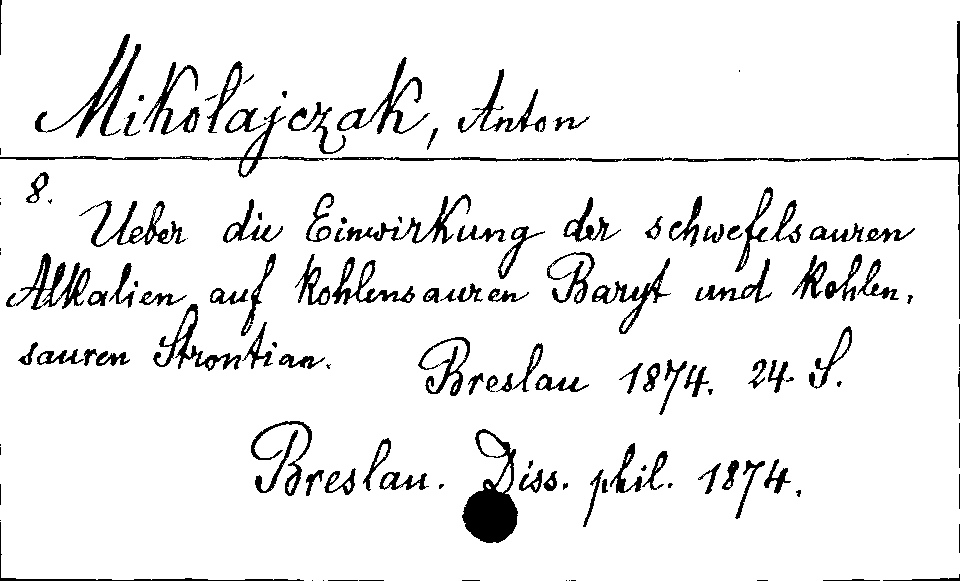 Mikołajczak, Anton
8.
Ueber die Einwirkung der schwefelsauren
Alkalien auf kohlensauren Baryt und kohlen-
sauren Strontian.
Breslau 1874. 24 S.
Breslau. Diss. phil. 1874.